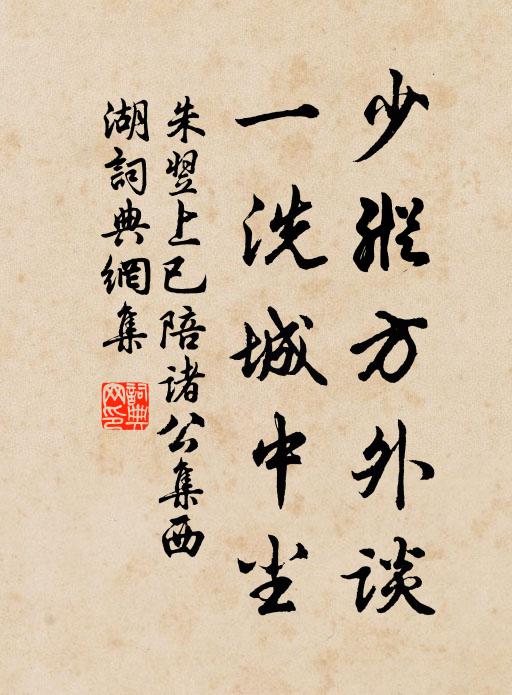 少縱方外談
一洗城中尘
朱翌上巳陪诸公集西
湖詞典網集
詞典
网印